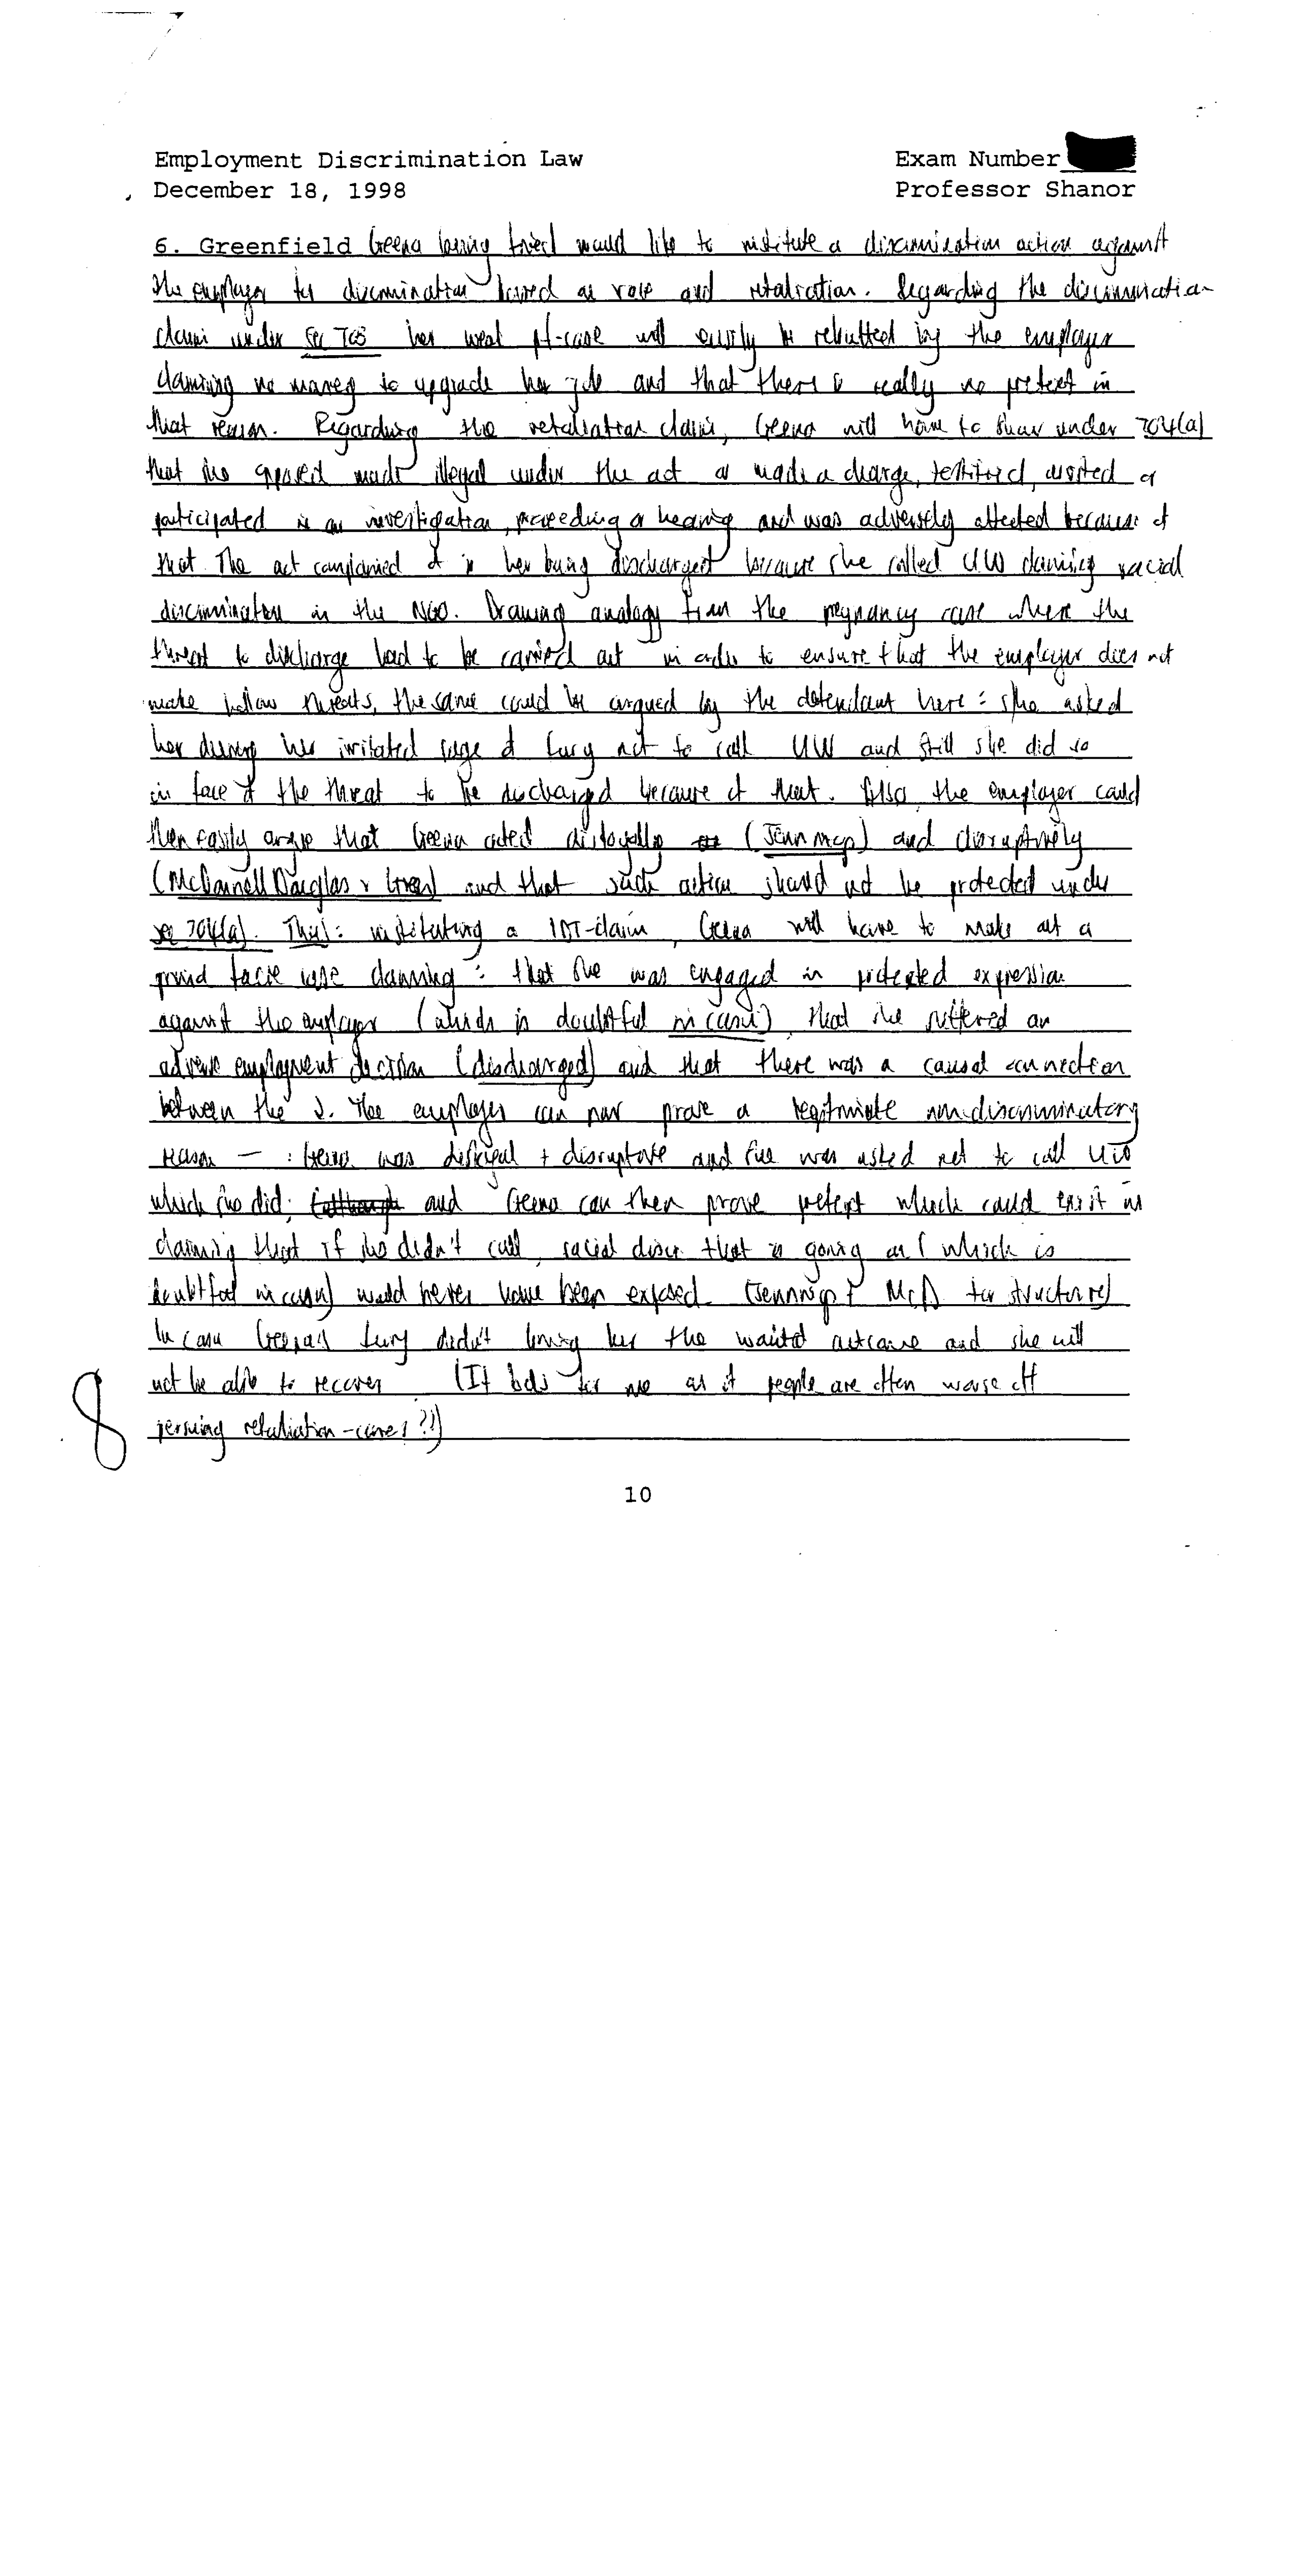 Employment Discrimination Law
Exam Number
December 18, 1998
Professor Shanor
6. Greenfield Geena being fired would like to institute a discrimination action against
the employer for discrimination based on race and retaliation. Regarding the discrimination
claim under sec 703 her weak pf-case will easily be rebutted by the employer
claiming no money to upgrade her job and that there is really no pretext in
that reason. Regarding the retaliation claim, Geena will have to show under 704(a)
that she opposed made illegal under the act or made a charge, testified, assisted or
participated in an investigation, proceeding or hearing and was adversely affected because of
that. The act complained of is her being discharged because she called UW claiming racial
discrimination in the NGO. Drawing analogy from the pregnancy case where the
threat to discharge had to be carried out in order to ensure that the employer does not
make hollow threats, the same could be argued by the defendant here: she asked
her during her irritated rage of fury not to call UW and still she did so
in face of the threat to be discharged because of that. Also, the employer could
then easily argue that Geena acted disloyally (Jennings) and disruptively
(McDonnell Douglas v Green) and that such action should not be protected under
sec 704(a). Thus: instituting a IDT-claim, Geena will have to make out a
prima facie case claiming: that she was engaged in protected expression
against the employer (which is doubtful in casu), that she suffered an
adverse employment decision (discharged) and that there was a causal connection
between the 2. The employer can now prove a legitimate nondiscriminatory
reason — : Geena was disloyal + disruptive and she was asked not to call UW
which she did; and Geena can then prove pretext which could exist in
claiming that if she didn't call, racial discr. that is going on (which is
doubtful in casu) would never have been exposed. (Jennings + McD for structure)
In casu Geena's fury didn't bring her the wanted outcome and she will
not be able to recover. (It looks for me as if people are often worse off
persuing retaliation-cases?!)
8
10